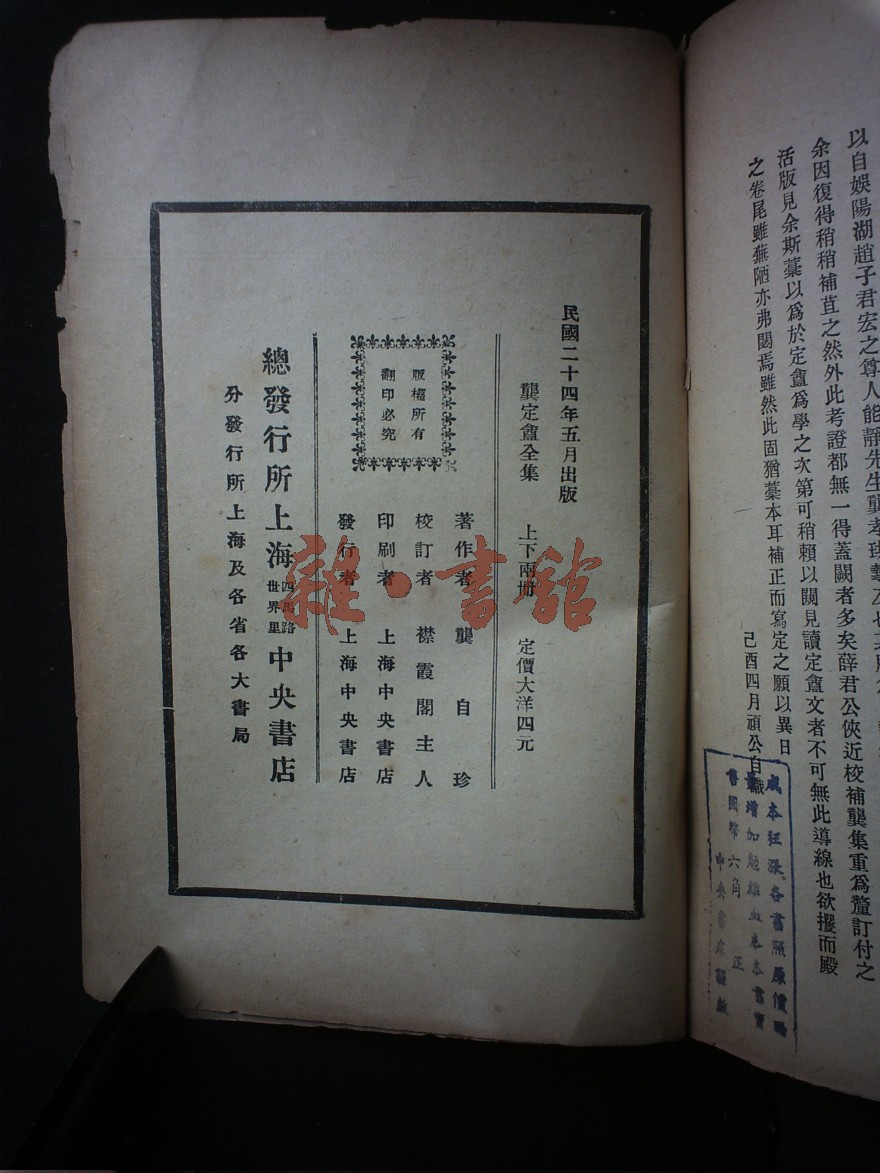 以自娛陽湖趙子君宏之尊人能靜先生龔孝珙
余因復得稍稍補苴之然外此考證都無一得蓋闕者多矣薛君公俠近校補龔集重爲釐訂付之
活版見余斯藁以爲於定盦爲學之次第可稍賴以闚見讀定盦文者不可無此導線也欲攫而殿
之卷尾雖蕪陋亦弗閟焉雖然此固猶藁本耳補正而寫定之願以異日
己酉四月頑公自識
成本狂漲各書照原價
增加
國幣六角正
中央書店謹啟
民國二十四年五月出版
龔定盦全集 上下兩冊 定價大洋四元
版權所有
翻印必究
著作者 龔自珍
校訂者 襟霞閣主人
印刷者 上海中央書店
發行者 上海中央書店
總發行所上海四馬路世界里中央書店
分發行所上海及各省各大書局
雜·書館